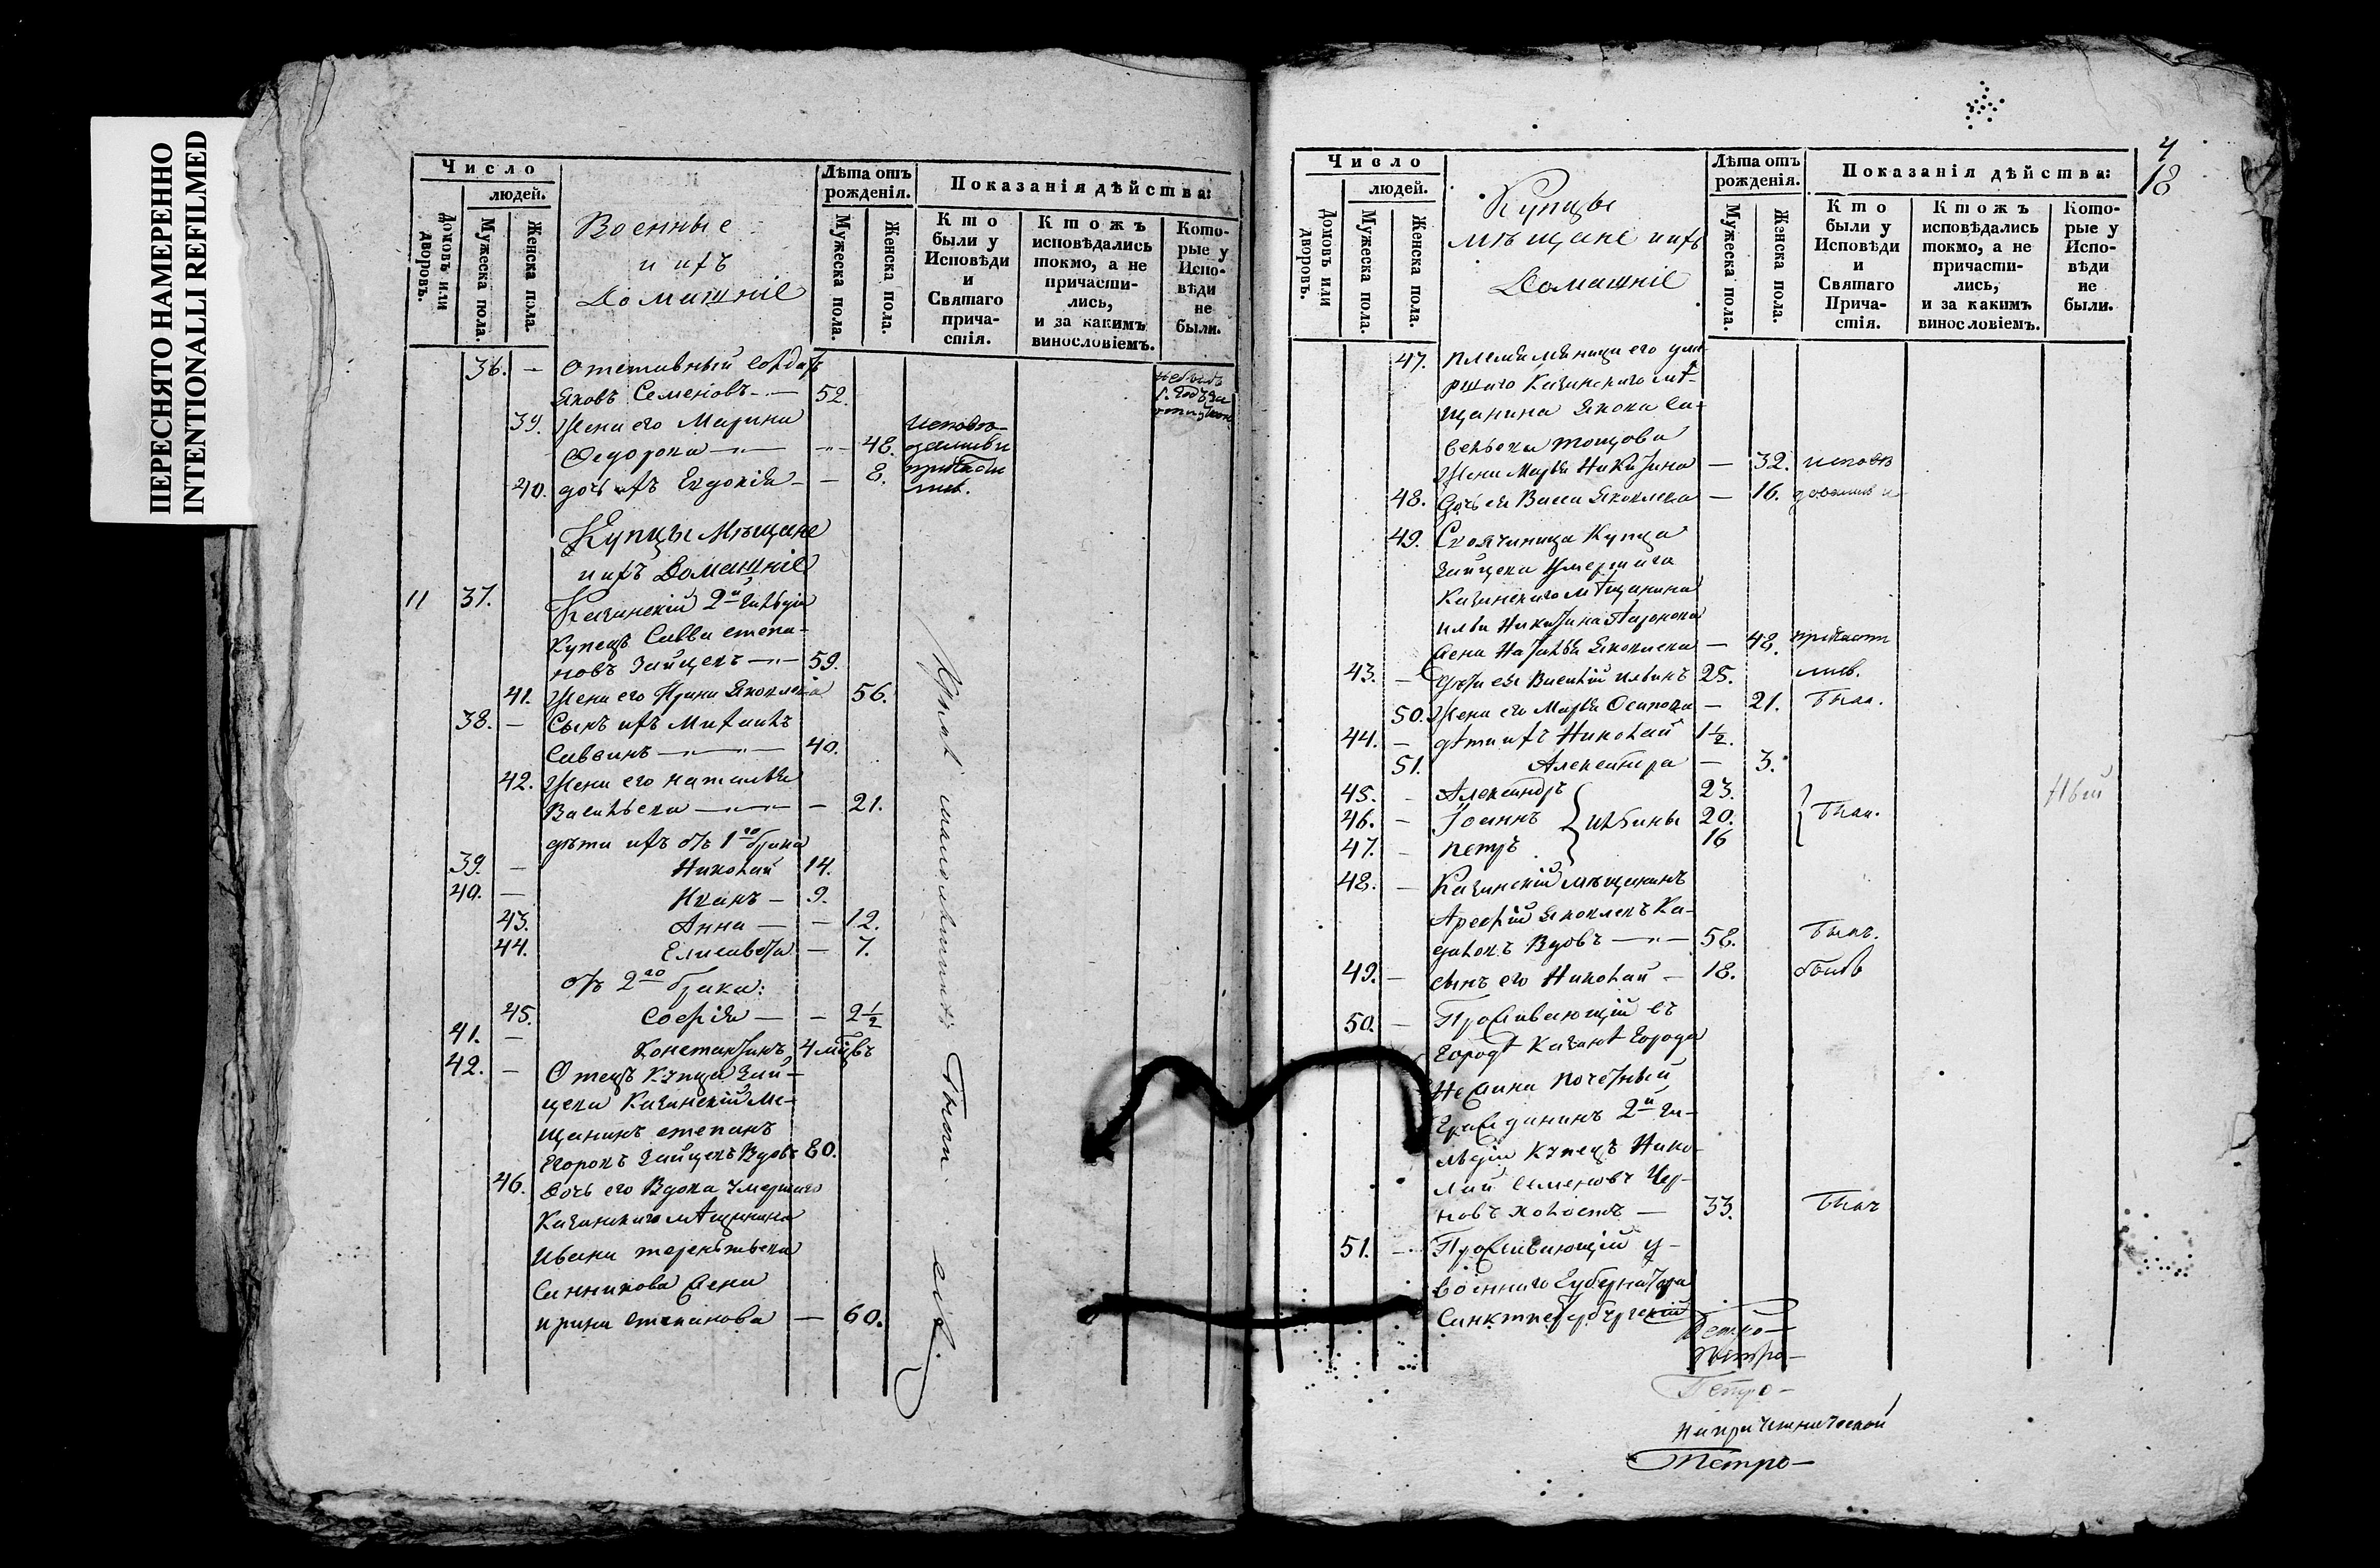 ПЕРЕСНЯТО НАМЕРЕННО
INTENTIONALLI REFILMED
Число
людей.
Домовъ или дворовъ.
Мужеска пола.
Женска пола.
Военные
и ихъ
Домашніе
Лѣта отъ рожденія.
Мужеска пола.
Женска пола.
Показанія дѣйства:
Кто были у Исповѣди и Святаго причастія.
Ктожъ исповѣдались токмо, а не причастились, и за какимъ винословіемъ.
Которые у Исповѣди не были.
36. — Отставный солдатъ
Яковъ Семеновъ — 52.
39. Жена его Марина
Федорова — 48.
40. дочь ихъ Евдокія — 8.
Исповѣдались и причастились.
Купцы Мѣщане
и ихъ Домашніе
11 37. Казанскій 2й гильдіи
Купецъ Савва Степановъ
Зайцевъ — 59.
41. Жена его Ирина Яковлева 56.
38. — Сынъ ихъ Михаилъ
Саввинъ — 40.
42. Жена его Наталья
Васильева — 21.
дѣти ихъ отъ 1го брака
39. — Николай 14.
40. — Иванъ — 9.
43. Анна — 12.
44. Елисавета — 7.
отъ 2го брака:
45. Софія — 2½
41. — Константинъ 4 мцвъ
42. — Отецъ Купца Зайцева
Казанскій Мещанинъ
Степанъ
Егоровъ Зайцевъ Вдовъ 80.
46. Дочь его Вдова умершаго
Казанскаго мѣщанина
Ивана Терентьева
Санникова жена
Ирина Степанова — 60.
4
18
Число
людей.
Домовъ или дворовъ.
Мужеска пола.
Женска пола.
Купцы
мѣщане и ихъ
Домашніе
Лѣта отъ рожденія.
Мужеска пола.
Женска пола.
Показанія дѣйства:
Кто были у Исповѣди и Святаго Причастія.
Ктожъ исповѣдались токмо, а не причастились, и за какимъ винословіемъ.
Которые у Исповѣди не были.
47. племянница его умершаго
Казанскаго мѣщанина
Якова
Жена Марья Никитина — 32. исповѣ
48. Дочь ея Васса Яковлева — 16. довались и
49. Своячиница Купца
Зайцева Умершаго
Казанскаго мѣщанина
Ильи Никитина
жена Наталья Яковлева — 48. причасти
43. — дѣти ея Василій Ильинъ 25. лись.
50. Жена его Марья Осипова — 21. Были.
44. — дѣти ихъ Николай 1½.
51. Александра — 3.
45. — Александръ 23.
46. — Іоаннъ Ильины 20. Были.
47. — Петръ 16
48. — Казанскій мѣщанинъ
Арефій Яковлевъ
Вдовъ — 58. Былъ.
49. — сынъ его Николай — 18. былъ
50. — Проживающій въ
городѣ Казанѣ города
Нежина Почетный
Гражданинъ 2й гильдіи
Купецъ Николай
Семеновъ Чер-
новъ холостъ — 33. Былъ
51. — Проживающій у
военнаго Губернатора
Санктпетербургскій
Петро—
Петро—
Петро—
Петро—